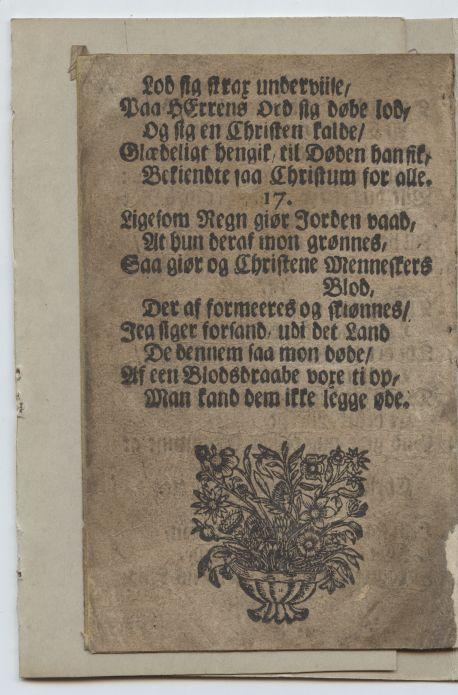 Lod sig strax underviise/
Paa HErrens Ord sig døbe lod/
Og sig en Christen kalde/
Glædeligt hengik/ til Døden han fik/
Bekiendte saa Christum for alle.
17.
Ligesom Regn giør Jorden vaad/
At hun deraf mon grønnes/
Saa giør og Christene Menneskers
Blod,
Der af formeeres og skiønnes/
Jeg siger forsand/ udi det Land
De dennem saa mon døde/
Af een Blodsdraabe voxe ti op/
Man kand dem ikke legge øde.